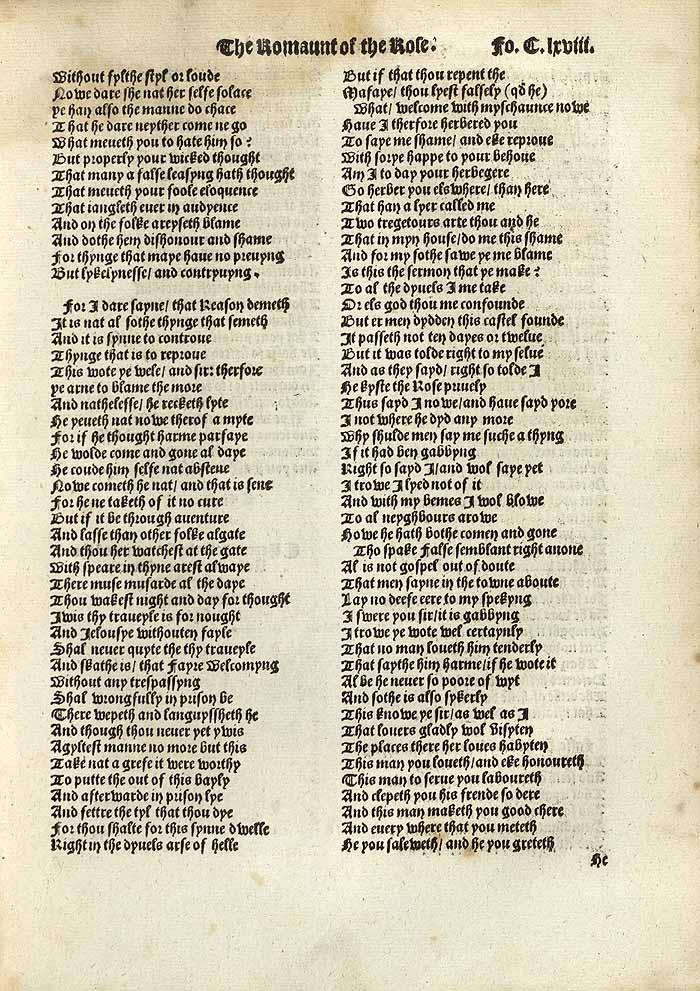 The Romaunt of the Rose. Fo. C. lxviii.
Without fylthe styl or loude
Nowe dare she nat her selfe solace
ye han also the manne do chace
That he dare neyther come ne go
What meueth you to hate him so?
But properly your wicked thought
That many a false leasyng hath thought
That meueth your foole eloquence
That iangleth euer in audyence
And on the folke areyseth blame
And dothe hem dishonour and shame
For thynge that maye haue no preuyng
But lykelynesse/ and contryuyng.
For I dare sayne/ that Reason demeth
It is nat al sothe thynge that semeth
And it is synne to controue
Thynge that is to reproue
This wote ye wele/ and sir: therfore
ye arne to blame the more
And nathelesse/ he recketh lyte
He yeueth nat nowe therof a myte
For if he thought harme parfaye
He wolde come and gone al daye
He coude him selfe nat abstene
Nowe cometh he nat/ and that is sene
For he ne taketh of it no cure
But if it be through auenture
And lasse than other folke algate
And thou her watchest at the gate
With speare in thyne arest alwaye
There muse musarde al the daye
Thou wakest night and day for thought
Iwis thy traueyle is for nought
And Jelousye withouten fayle
Shal neuer quyte the thy traueyle
And skathe is/ that Fayre Welcomyng
Without any trespassyng
Shal wrongfully in prison be
There wepeth and languyssheth he
And though thou neuer yet ywis
Agyltest manne no more but this
Take nat a grefe it were worthy
To putte the out of this bayly
And afterwarde in prison lye
And fettre the tyl that thou dye
For thou shalte for this synne dwelle
Right in the dyuels arse of helle
But if that thou repent the
Mafaye/ thou lyest falsely (qd he)
What/ welcome with myschaunce nowe
Haue I therfore herbered you
To saye me shame/ and eke reproue
With sorye happe to your behoue
Am I to day your herbegere
Go herber you elswhere/ than here
That han a lyer called me
Two tregetours arte thou and he
That in myn house/ do me this shame
And for my sothe sawe ye me blame
Is this the sermon that ye make?
To al the dyuels I me take
Or els god thou me confounde
But er men dydden this castel founde
It passeth not ten dayes or twelue
But it was tolde right to my selue
And as they sayd/ right so tolde I
He kyste the Rose priuely
Thus sayd I nowe/ and haue sayd yore
I not where he dyd any more
Why shulde men say me suche a thyng
If it had ben gabbyng
Right so sayd I/ and wol saye yet
I trowe I lyed not of it
And with my bemes I wol blowe
To al neyghbours arowe
Howe he hath bothe comen and gone
Tho spake False semblant right anone
Al is not gospel out of doute
That men sayne in the towne aboute
Lay no deefe eere to my spekyng
I swere you sir/ it is gabbyng
I trowe ye wote wel certaynly
That no man loueth him tenderly
That saythe him harme/ if he wote it
Al be he neuer so poore of wyt
And sothe is also sykerly
This knowe ye sir/ as wel as I
That louers gladly wol visyten
The places there her loues habyten
This man you loueth/ and eke honoureth
This man to serue you laboureth
And clepeth you his frende so dere
And this man maketh you good chere
And euery where that you meteth
He you saleweth/ and he you greteth
He